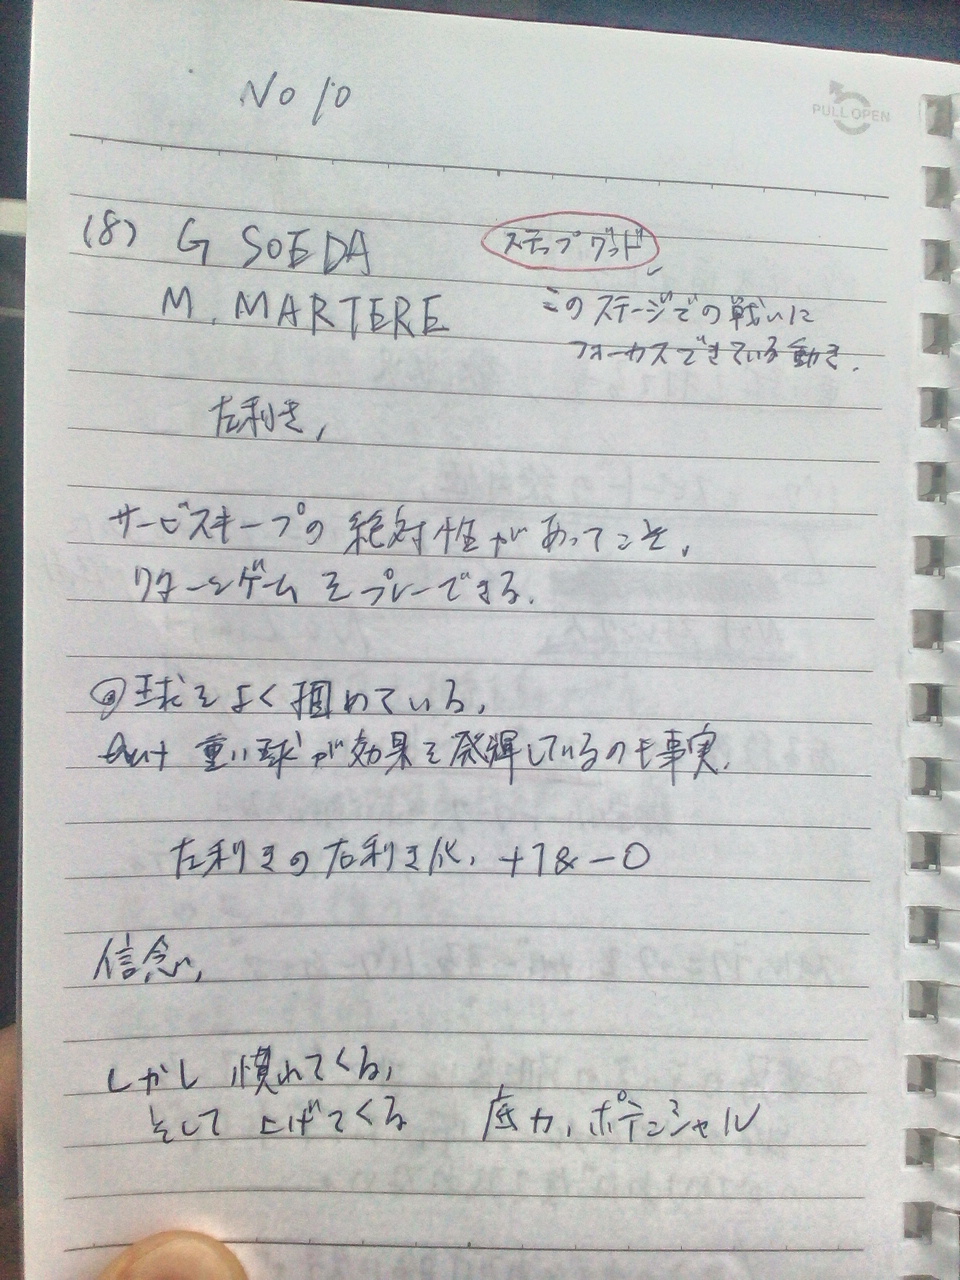 No 10
PULL OPEN
(8) G SOEDA
ステップグッド
M. MARTERE
このステージでの戦いに
フォーカスできている動き.
左利き,
サービスキープの絶対性があってこそ,
リターンゲームをプレーできる.
球をよく掴めている,
but 重い球が効果を発揮しているのも事実.
左利きの左利き化, +1&-0
信念,
しかし慣れてくる,
そして上げてくる 底力, ポテンシャル